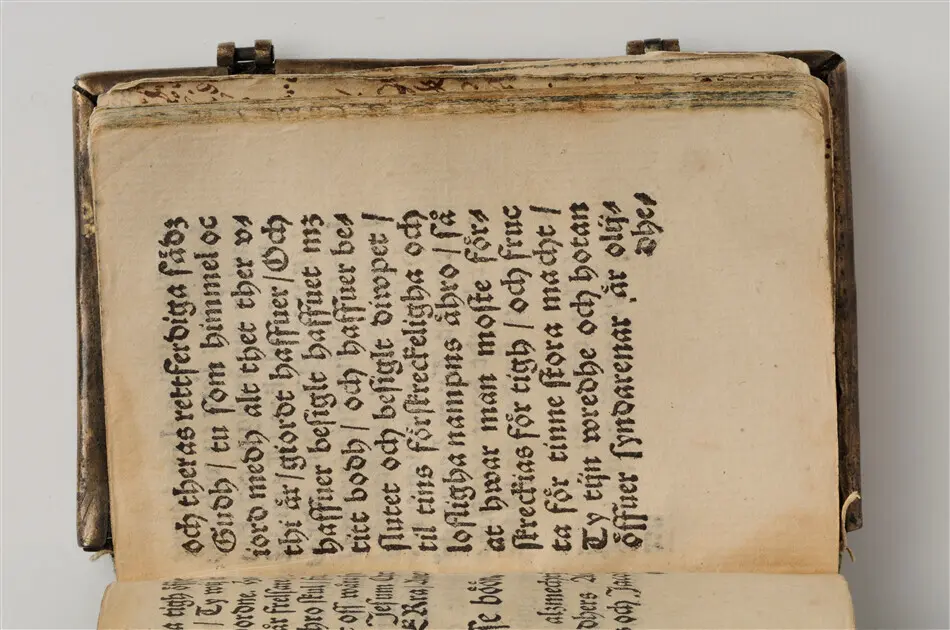 tigh
/ Ty
oss
Jesum
och
och theras rettferdiga sådz
Gudh / tu som himmel oc
iord medh alt thet ther v⸗
thi år / giordt haffuer / Och
haffuer besiglt haffuet mz
titt bodh / och haffuer be⸗
slutet och besiglt diwpet /
til tins förskreckeligha och
lofligha nampns åhro / så
at hwar man moste för⸗
skreckias för tigh / och fruc
ta för tinne stora macht /
Ty tijn wredhe och hotan
öffuer syndarenar år olij⸗
dhe⸗